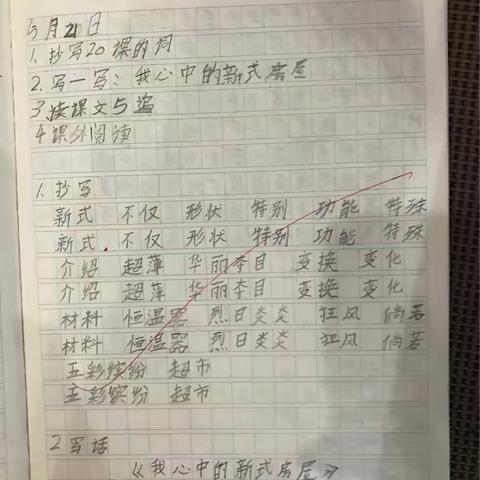 5月21日
1.抄写20课的词
2.写一写：我心中的新式房屋
3.读课文5遍
4课外阅读
1.抄写
新式 不仅 形状 特别 功能 特殊
新式. 不仅 形状 特别 功能 特殊
介绍 超薄 华丽李目 变换 变化
介绍 超薄 华丽李目 变换 变化
材料 恒温器 烈日炎炎 狂风 倘若
材料 恒温器 烈日炎炎 狂风 倘若
五彩缤纷 超市
五彩缤纷 超市
2写话
《我心中的新式房屋》